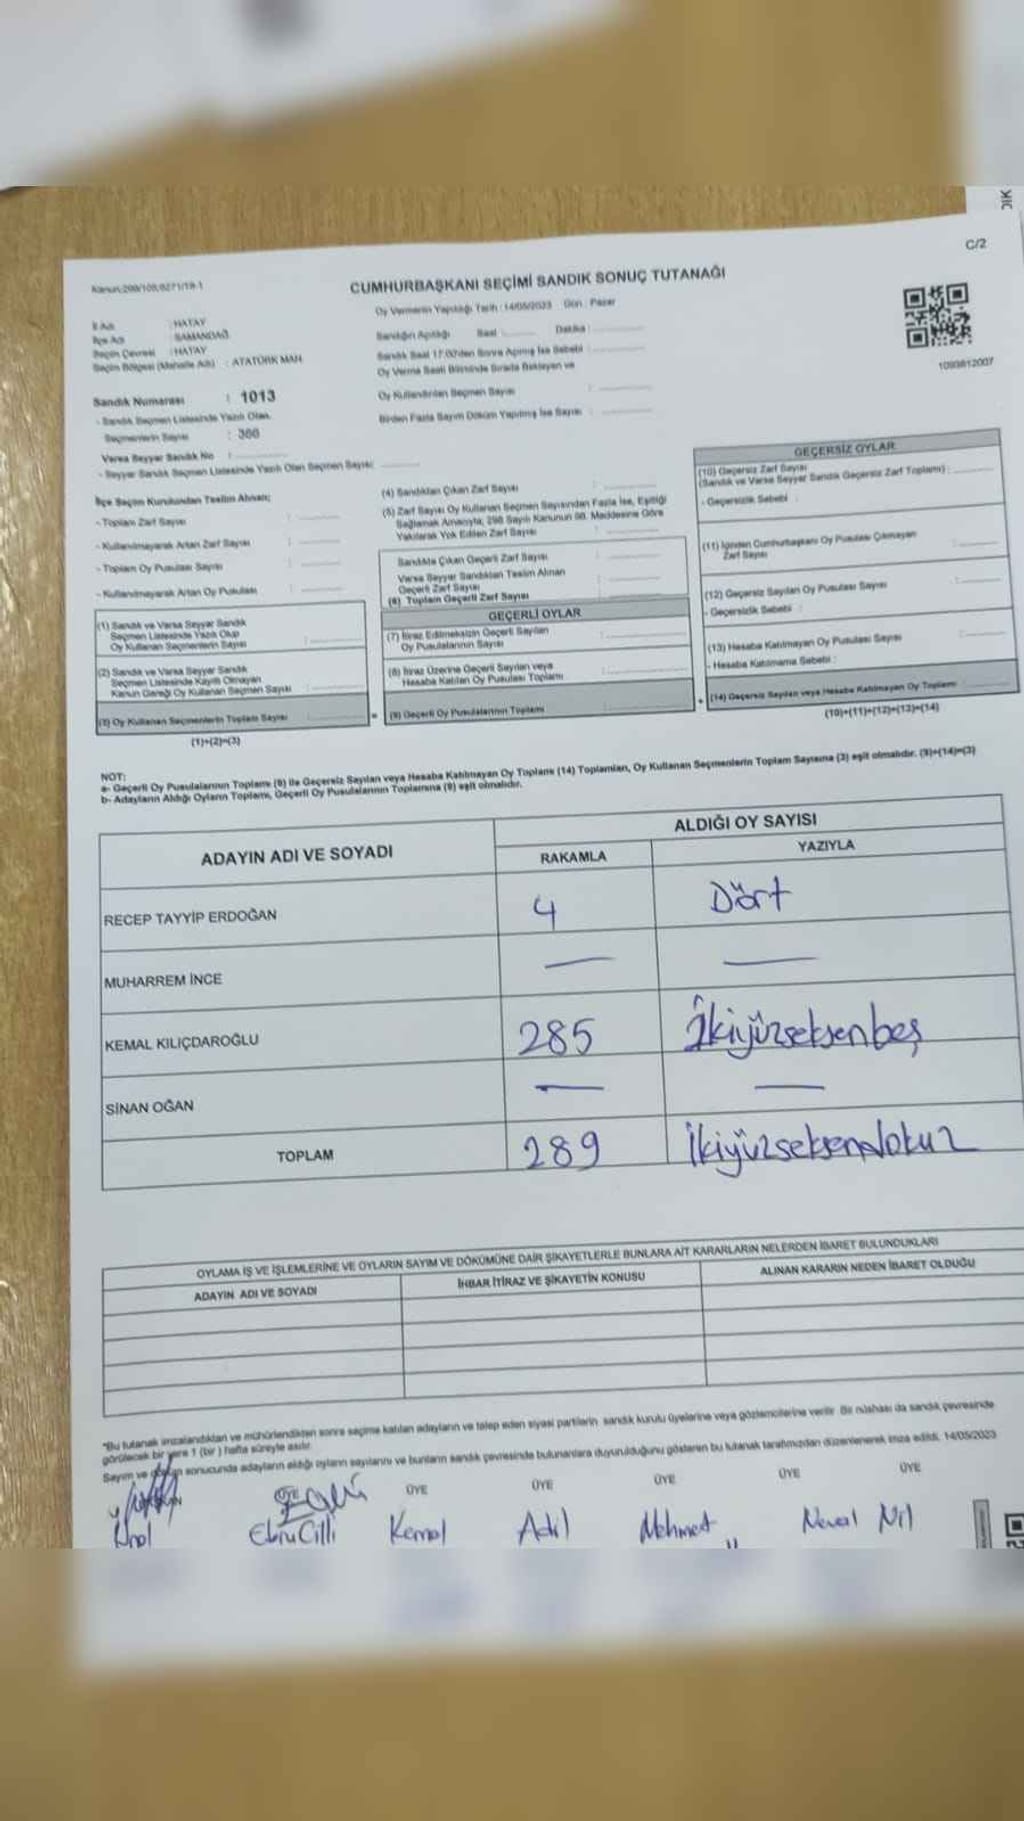 C/2
CUMHURBAŞKANI SEÇİMİ SANDIK SONUÇ TUTANAĞI
Oy Vermenin Yapıldığı Tarih : 14/05/2023 Gün : Pazar
İl Adı : HATAY
İlçe Adı : SAMANDAĞ
Seçim Çevresi : HATAY
Seçim Bölgesi (Mahalle Adı) : ATATÜRK MAH.
Sandık Numarası : 1013
- Sandık Seçmen Listesinde Yazılı Olan
Seçmenlerin Sayısı :
Varsa Seyyar Sandık No :
- Seyyar Sandık Seçmen Listesinde Yazılı Olan Seçmen Sayısı:
Sandığın Açıldığı Saat : Dakika :
Sandık Saat 17:00'den Sonra Açılmış İse Sebebi :
Oy Verme Saati Bitiminde Sırada Bekleyen ve
Oy Kullandırılan Seçmen Sayısı :
Birden Fazla Sayım Döküm Yapılmış İse Sayısı :
1093812007
İlçe Seçim Kurulundan Teslim Alınan;
- Toplam Zarf Sayısı :
- Kullanılmayarak Artan Zarf Sayısı :
- Toplam Oy Pusulası Sayısı :
- Kullanılmayarak Artan Oy Pusulası :
(1) Sandık ve Varsa Seyyar Sandık
Seçmen Listesinde Yazılı Olup
Oy Kullanan Seçmenlerin Sayısı :
(2) Sandık ve Varsa Seyyar Sandık
Seçmen Listesinde Kayıtlı Olmayan
Kanun Gereği Oy Kullanan Seçmen Sayısı :
(3) Oy Kullanan Seçmenlerin Toplam Sayısı :
(1)+(2)=(3)
(4) Sandıktan Çıkan Zarf Sayısı :
(5) Zarf Sayısı Oy Kullanan Seçmen Sayısından Fazla İse, Eşitliği
Sağlamak Amacıyla; 298 Sayılı Kanunun 98. Maddesine Göre
Yakılarak Yok Edilen Zarf Sayısı :
Sandıkta Çıkan Geçerli Zarf Sayısı :
Varsa Seyyar Sandıktan Teslim Alınan
Geçerli Zarf Sayısı :
(6) Toplam Geçerli Zarf Sayısı :
GEÇERLİ OYLAR
(7) İtiraz Edilmeksizin Geçerli Sayılan
Oy Pusulalarının Sayısı :
(8) İtiraz Üzerine Geçerli Sayılan veya
Hesaba Katılan Oy Pusulası Toplamı :
= (9) Geçerli Oy Pusulalarının Toplamı :
GEÇERSİZ OYLAR
(10) Geçersiz Zarf Sayısı
(Sandık ve Varsa Seyyar Sandık Geçersiz Zarf Toplamı) :
- Geçersizlik Sebebi :
(11) İçinden Cumhurbaşkanı Oy Pusulası Çıkmayan
Zarf Sayısı :
(12) Geçersiz Sayılan Oy Pusulası Sayısı :
- Geçersizlik Sebebi :
(13) Hesaba Katılmayan Oy Pusulası Sayısı :
- Hesaba Katılmama Sebebi :
+ (14) Geçersiz Sayılan veya Hesaba Katılmayan Oy Toplamı :
(10)+(11)+(12)+(13)=(14)
NOT:
a- Geçerli Oy Pusulalarının Toplamı (9) ile Geçersiz Sayılan veya Hesaba Katılmayan Oy Toplamı (14) Toplamları, Oy Kullanan Seçmenlerin Toplam Sayısına (3) eşit olmalıdır. (9)+(14)=(3)
b- Adayların Aldığı Oyların Toplamı, Geçerli Oy Pusulalarının Toplamına (9) eşit olmalıdır.
ADAYIN ADI VE SOYADI
ALDIĞI OY SAYISI
RAKAMLA YAZIYLA
RECEP TAYYİP ERDOĞAN 4 Dört
MUHARREM İNCE — —
KEMAL KILIÇDAROĞLU 285 İkiyüzseksenbeş
SİNAN OĞAN — —
TOPLAM 289 İkiyüzseksendokuz
OYLAMA İŞ VE İŞLEMLERİNE VE OYLARIN SAYIM VE DÖKÜMÜNE DAİR ŞİKAYETLERLE BUNLARA AİT KARARLARIN NELERDEN İBARET BULUNDUKLARI
ADAYIN ADI VE SOYADI İHBAR İTİRAZ VE ŞİKAYETİN KONUSU ALINAN KARARIN NEDEN İBARET OLDUĞU
*Bu tutanak imzalandıktan ve mühürlendikten sonra seçime katılan adayların ve talep eden siyasi partilerin sandık kurulu üyelerine veya gözlemcilerine verilir. Bir nüshası da sandık çevresinde
görülecek bir yere 1 (bir) hafta süreyle asılır.
Sayım ve döküm sonucunda adayların aldığı oyların sayılarını ve bunların sandık çevresinde bulunanlara duyurulduğunu gösteren bu tutanak tarafımızdan düzenlenerek imza edildi. 14/05/2023
ÜYE ÜYE ÜYE ÜYE ÜYE ÜYE
Ebru Cilli Kemal Adil Mehmet Neval Nil